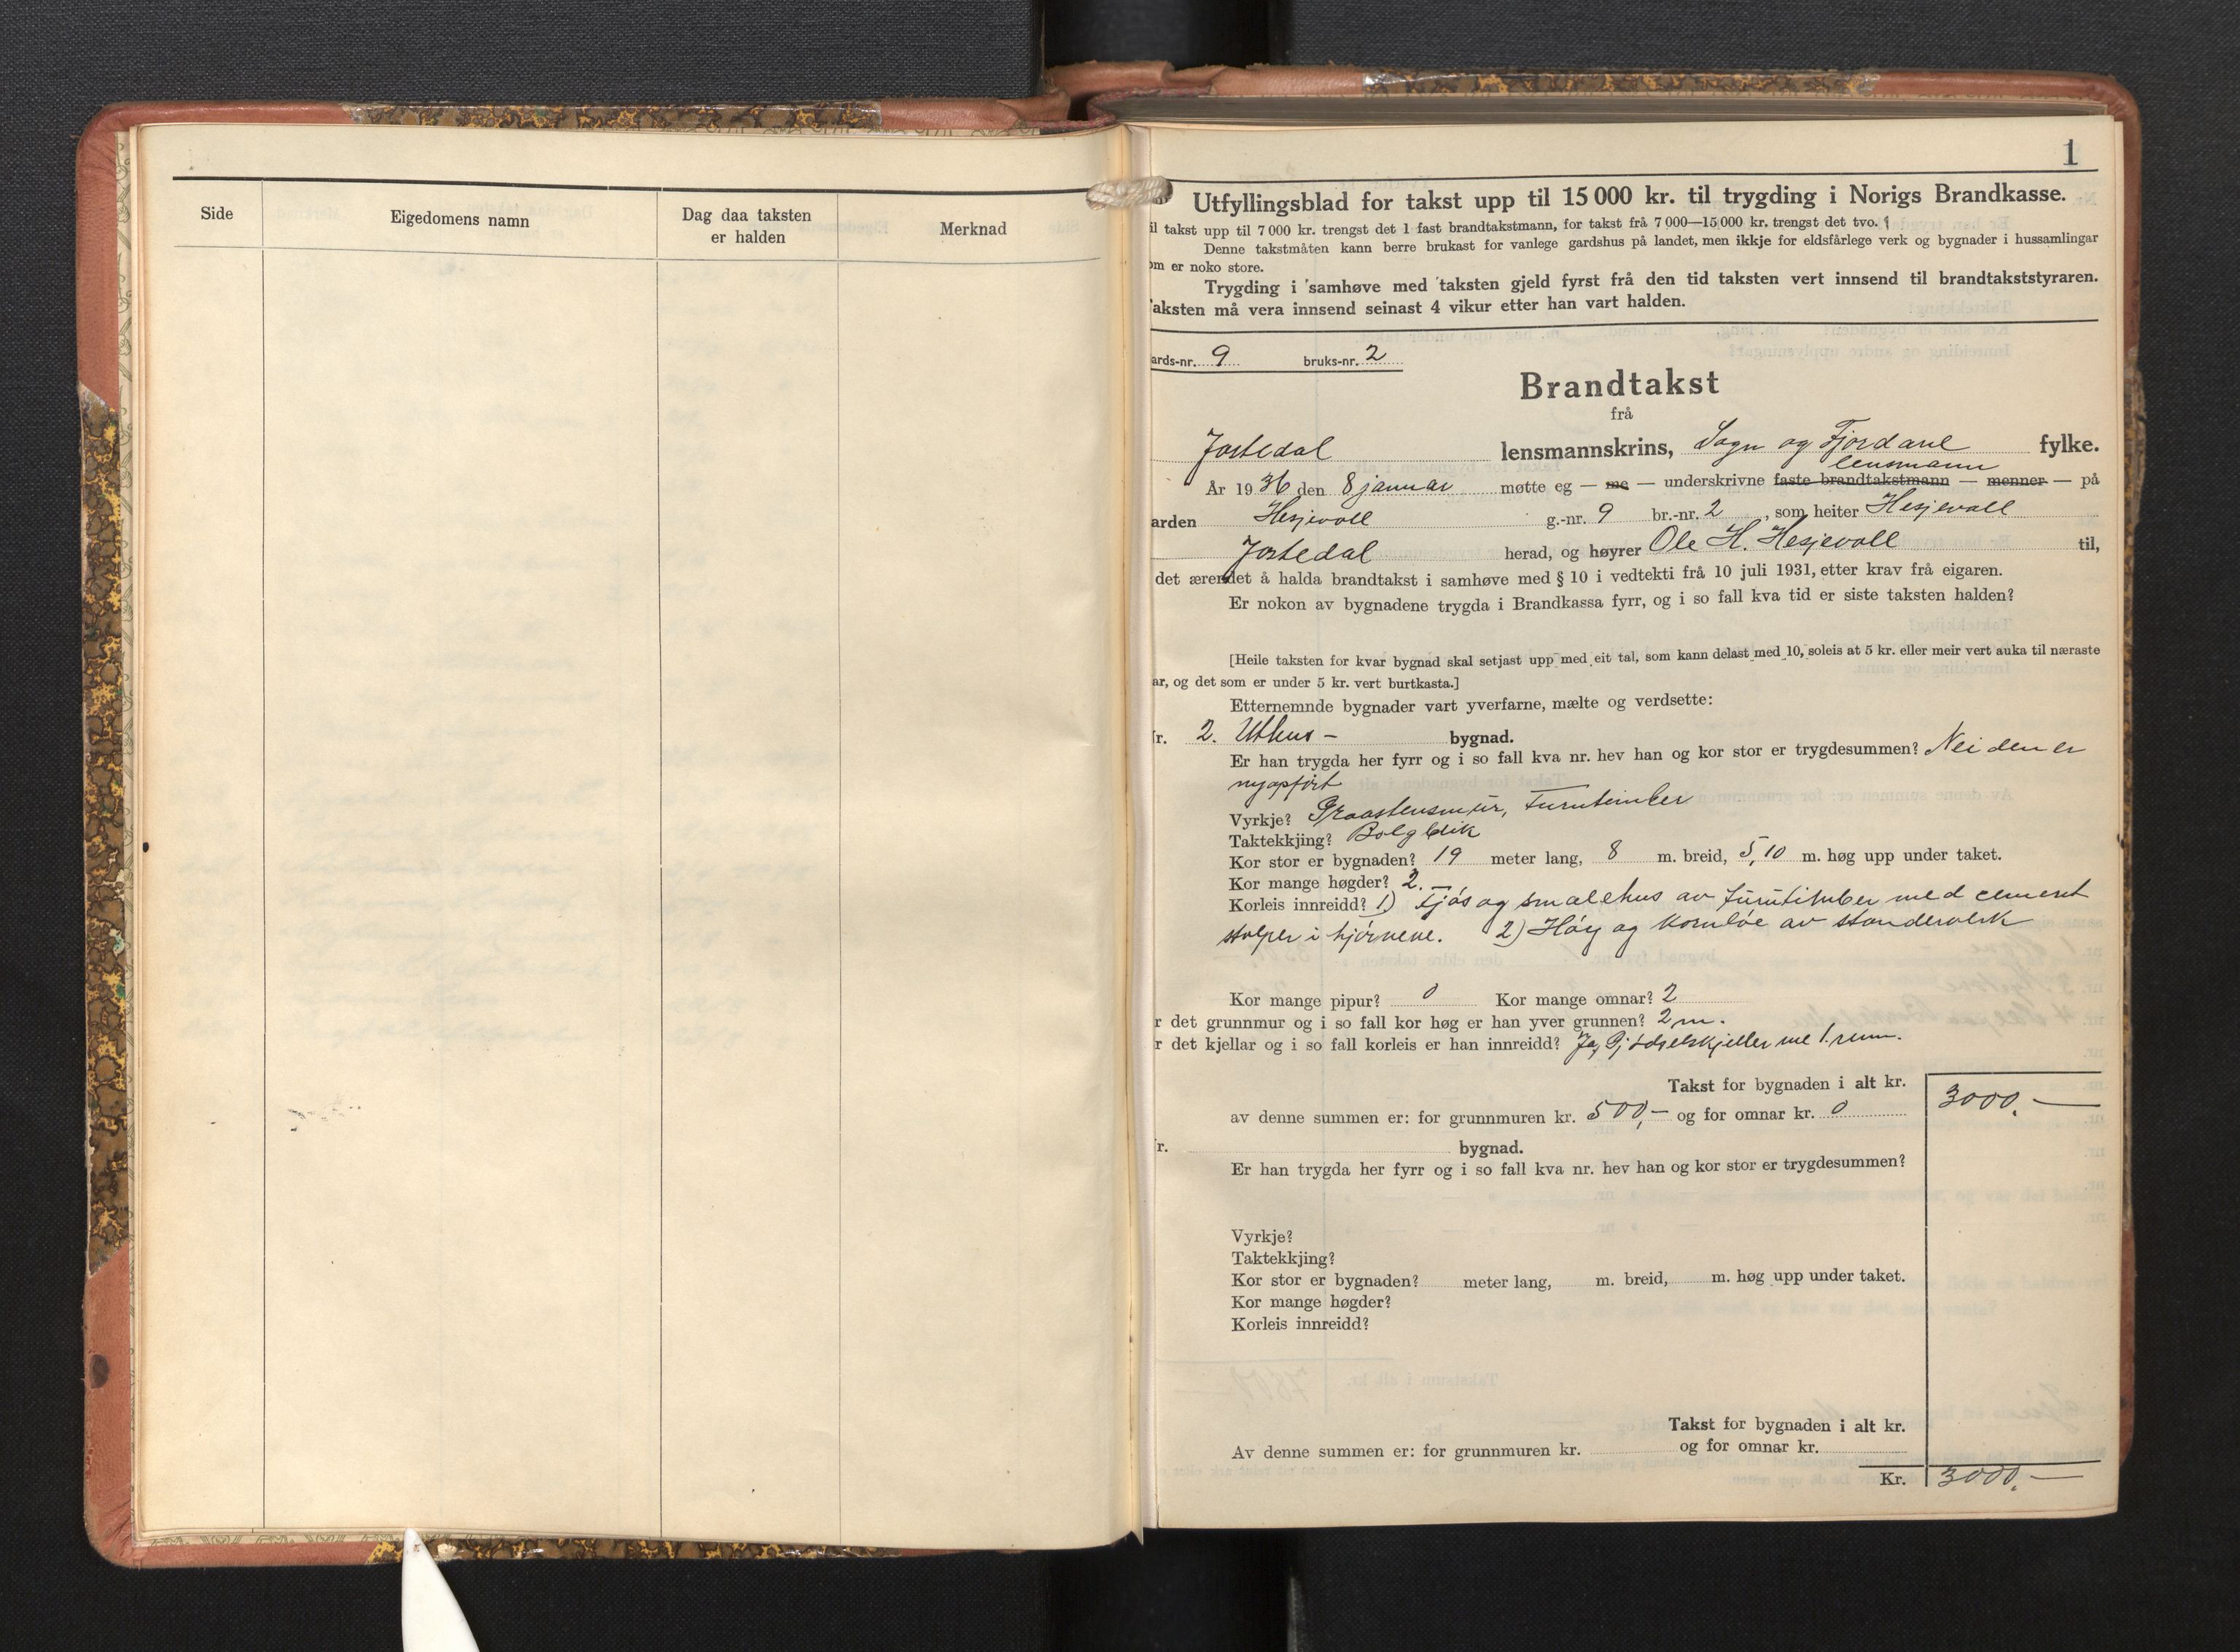 Side
Eigedomens namn
Dag daa taksten
er halden
Merknad
1
Utfyllingsblad for takst upp til 15 000 kr. til trygding i Norigs Brandkasse.
il takst upp til 7 000 kr. trengst det 1 fast brandtakstmann, for takst frå 7 000—15 000 kr. trengst det tvo.
Denne takstmåten kann berre brukast for vanlege gardshus på landet, men ikkje for eldsfårlege verk og bygnader i hussamlingar
om er noko store.
Trygding i samhøve med taksten gjeld fyrst frå den tid taksten vert innsend til brandtakststyraren.
aksten må vera innsend seinast 4 vikur etter han vart halden.
ards-nr. 9 bruks-nr. 2
Brandtakst
frå
Jostedal lensmannskrins, Sogn og Fjordane fylke.
lensmann
År 1936 den 8 januar møtte eg — me — underskrivne faste brandtakstmann — menner — på
arden Hesjevoll g.-nr. 9 br.-nr. 2, som heiter Hesjevoll
Jostedal herad, og høyrer Ole H. Hesjevoll til,
det ærendet å halda brandtakst i samhøve med § 10 i vedtekti frå 10 juli 1931, etter krav frå eigaren.
Er nokon av bygnadene trygda i Brandkassa fyrr, og i so fall kva tid er siste taksten halden?
[Heile taksten for kvar bygnad skal setjast upp med eit tal, som kann delast med 10, soleis at 5 kr. eller meir vert auka til næraste
ar, og det som er under 5 kr. vert burtkasta.]
Etternemnde bygnader vart yverfarne, mælte og verdsette:
r. 2. Uthus – bygnad.
Er han trygda her fyrr og i so fall kva nr. hev han og kor stor er trygdesummen? Nei den er
nyopført
Vyrkje? Graastensmur, Furutimber
Taktekkjing? Bølgblik
Kor stor er bygnaden? 19 meter lang, 8 m. breid, 5,10 m. høg upp under taket.
Kor mange høgder? 2. –
Korleis innreidd? 1) Fjøs og smalehus av furutimber med cement
stolper i hjørnene. 2) Høy og kornløe av standerverk
Kor mange pipur? 0 Kor mange omnar? 2
r det grunnmur og i so fall kor høg er han yver grunnen? 2 m.
r det kjellar og i so fall korleis er han innreidd? Ja, Gjødselskjeller me 1. rum.
Takst for bygnaden i alt kr.
3000.—
av denne summen er: for grunnmuren kr. 500,– og for omnar kr. 0
r. bygnad.
Er han trygda her fyrr og i so fall kva nr. hev han og kor stor er trygdesummen?
Vyrkje?
Taktekkjing?
Kor stor er bygnaden? meter lang, m. breid, m. høg upp under taket.
Kor mange høgder?
Korleis innreidd?
Takst for bygnaden i alt kr.
Av denne summen er: for grunnmuren kr. og for omnar kr.
Kr. 3000.—